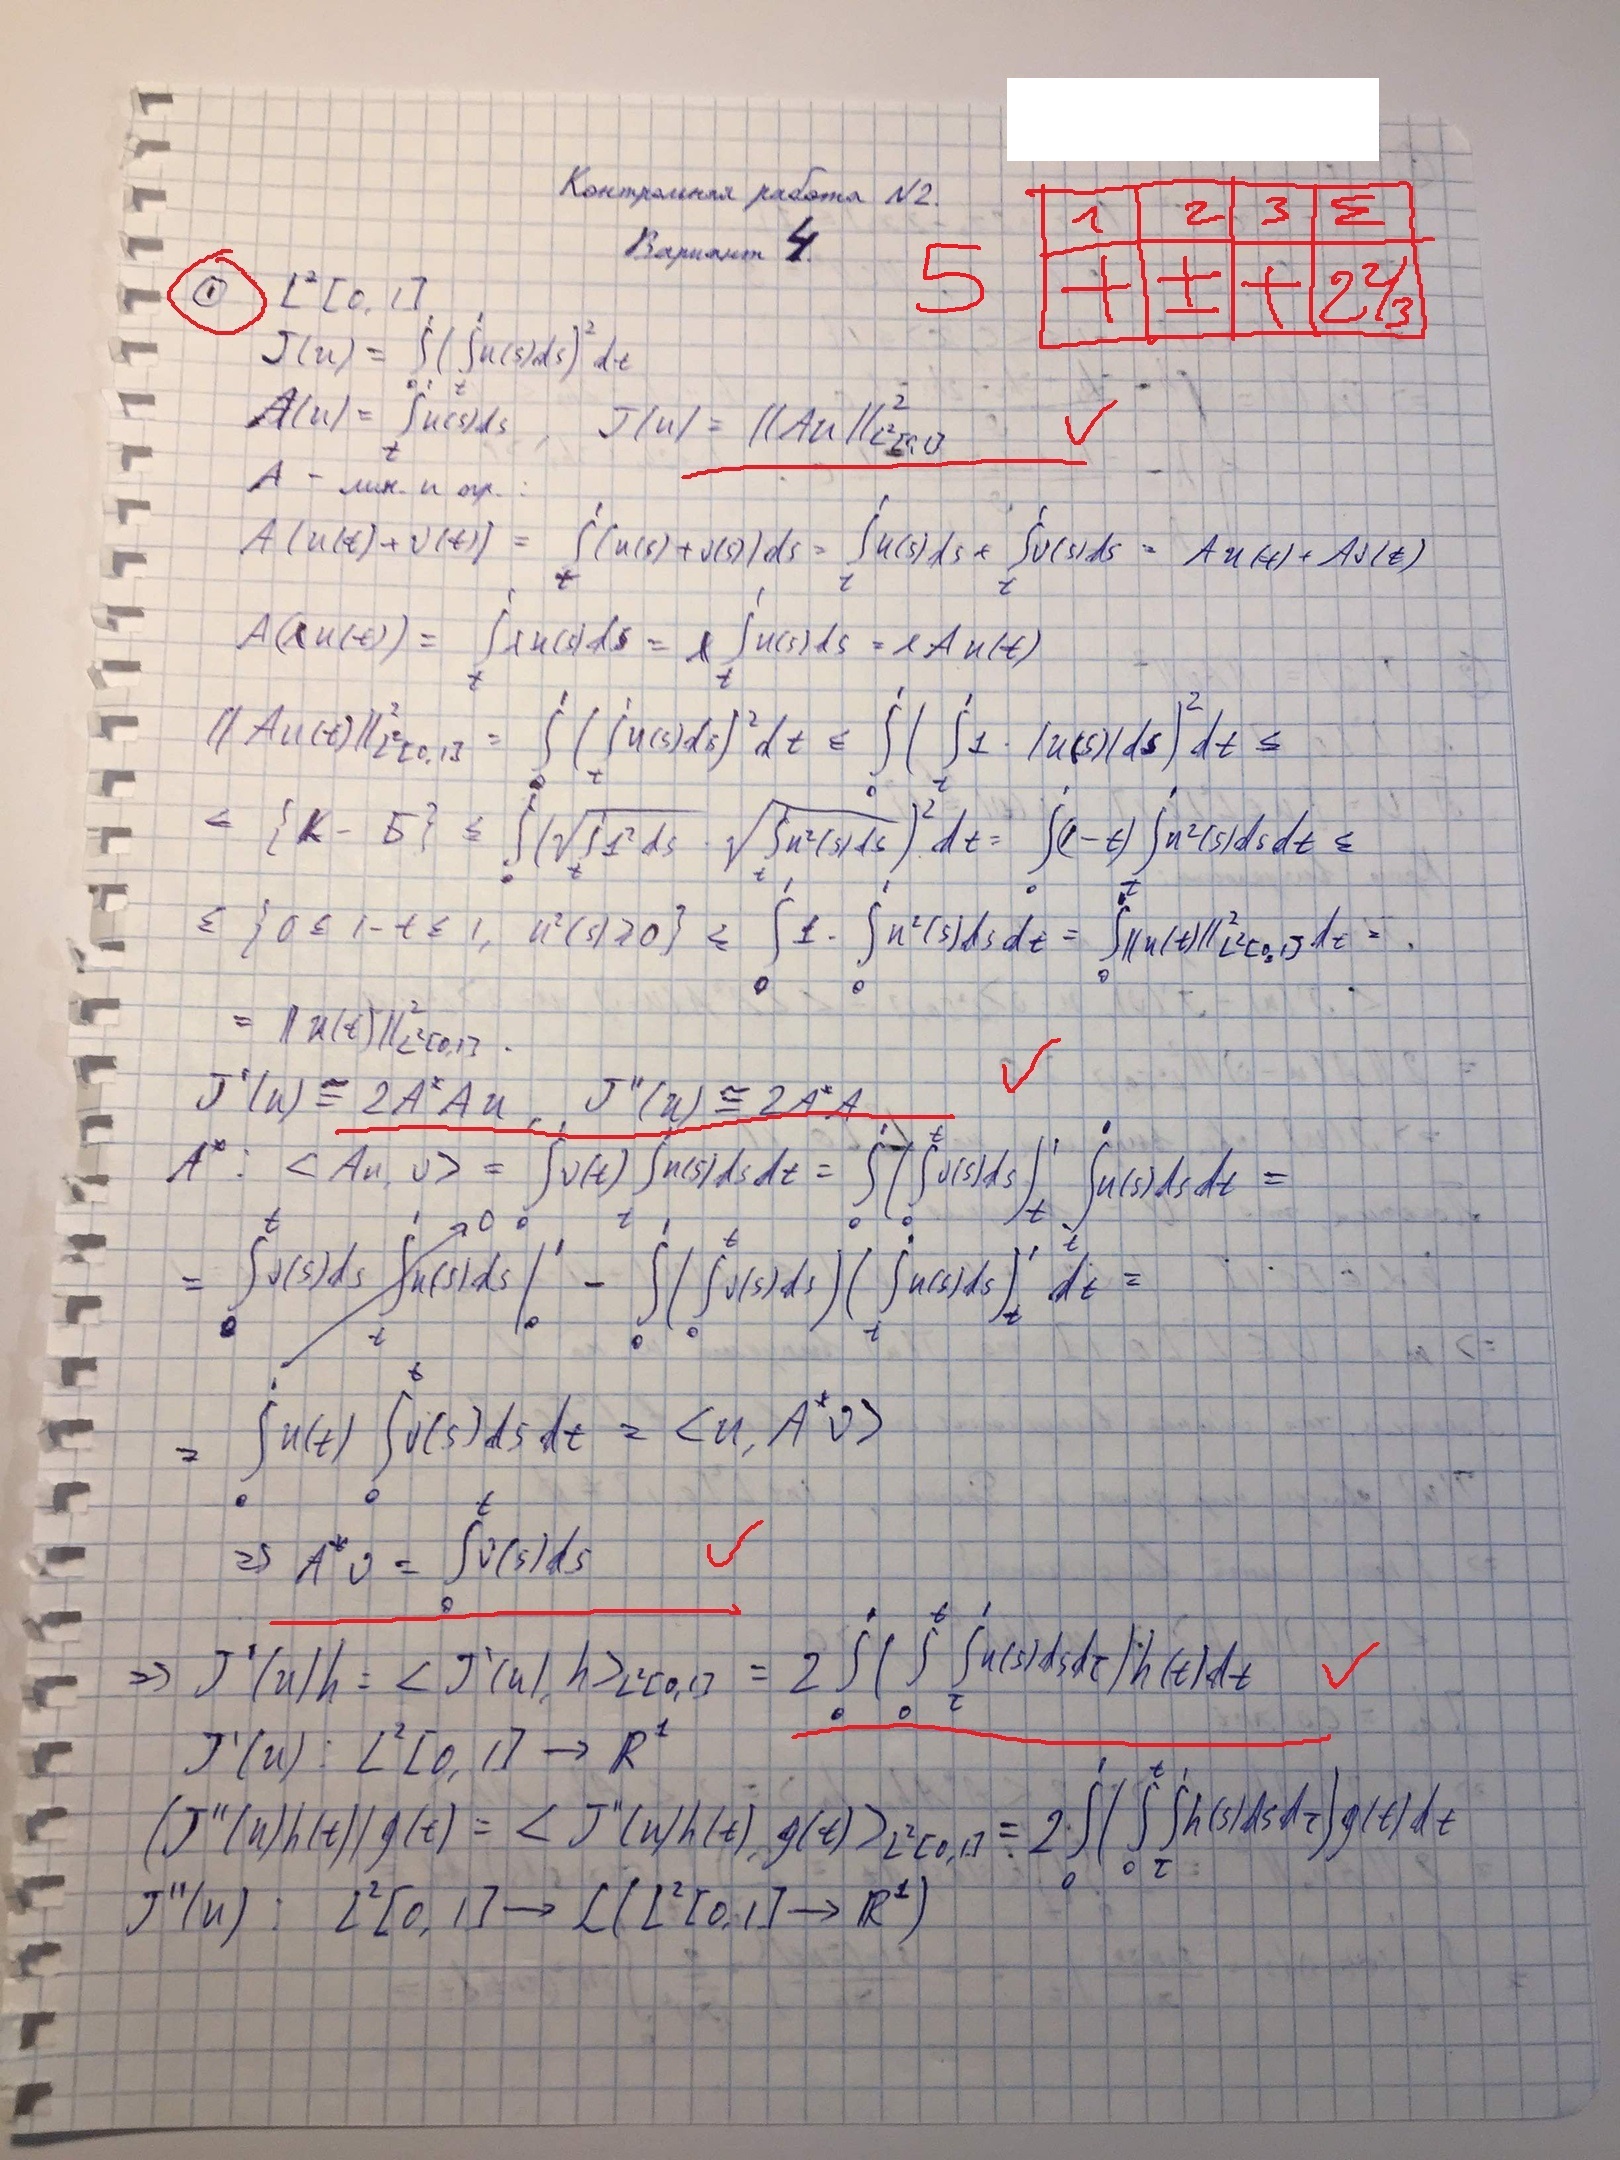 Контрольная работа №2.
Вариант 4.
5
1 2 3 Σ
+ ± + 2 2/3
① L²[0,1]
J(u) = ∫₀¹(∫ₜ¹u(s)ds)²dt
A(u) = ∫ₜ¹u(s)ds, J(u) = ||Au||²_{L²[0,1]} ✓
A - лин. и огр.:
A(u(t)+v(t)) = ∫ₜ¹(u(s)+v(s))ds = ∫ₜ¹u(s)ds + ∫ₜ¹v(s)ds = Au(t) + Av(t)
A(λu(t)) = ∫ₜ¹λu(s)ds = λ∫ₜ¹u(s)ds = λAu(t)
||Au(t)||²_{L²[0,1]} = ∫₀¹(∫ₜ¹u(s)ds)²dt ≤ ∫₀¹(∫ₜ¹1·|u(s)|ds)²dt ≤
≤ {К-Б} ≤ ∫₀¹(√(∫ₜ¹1²ds) · √(∫ₜ¹u²(s)ds))²dt = ∫₀¹(1-t)∫ₜ¹u²(s)dsdt ≤
≤ {0 ≤ 1-t ≤ 1, u²(s)≥0} ≤ ∫₀¹1·∫₀¹u²(s)dsdt = ∫₀¹||u(t)||²_{L²[0,1]}dt =
= ||u(t)||²_{L²[0,1]}.
J'(u) ≅ 2A*Au, J''(u) ≅ 2A*A ✓
A*: <Au, v> = ∫₀¹v(t)∫ₜ¹u(s)dsdt = ∫₀¹(∫₀ᵗv(s)ds)'ₜ ∫ₜ¹u(s)dsdt =
= ∫₀ᵗv(s)ds ∫ₜ¹u(s)ds|₀¹ →0 - ∫₀¹(∫₀ᵗv(s)ds)(∫ₜ¹u(s)ds)'ₜ dt =
= ∫₀¹u(t)∫₀ᵗv(s)dsdt = <u, A*v>
⇒ A*v = ∫₀ᵗv(s)ds ✓
⇒ J'(u)h = <J'(u), h>_{L²[0,1]} = 2∫₀¹(∫₀ᵗ∫_τ¹u(s)dsdτ)h(t)dt ✓
J'(u): L²[0,1] → R¹
(J''(u)h(t))g(t) = <J''(u)h(t), g(t)>_{L²[0,1]} = 2∫₀¹(∫₀ᵗ∫_τ¹h(s)dsdτ)g(t)dt
J''(u): L²[0,1] → L(L²[0,1] → R¹)